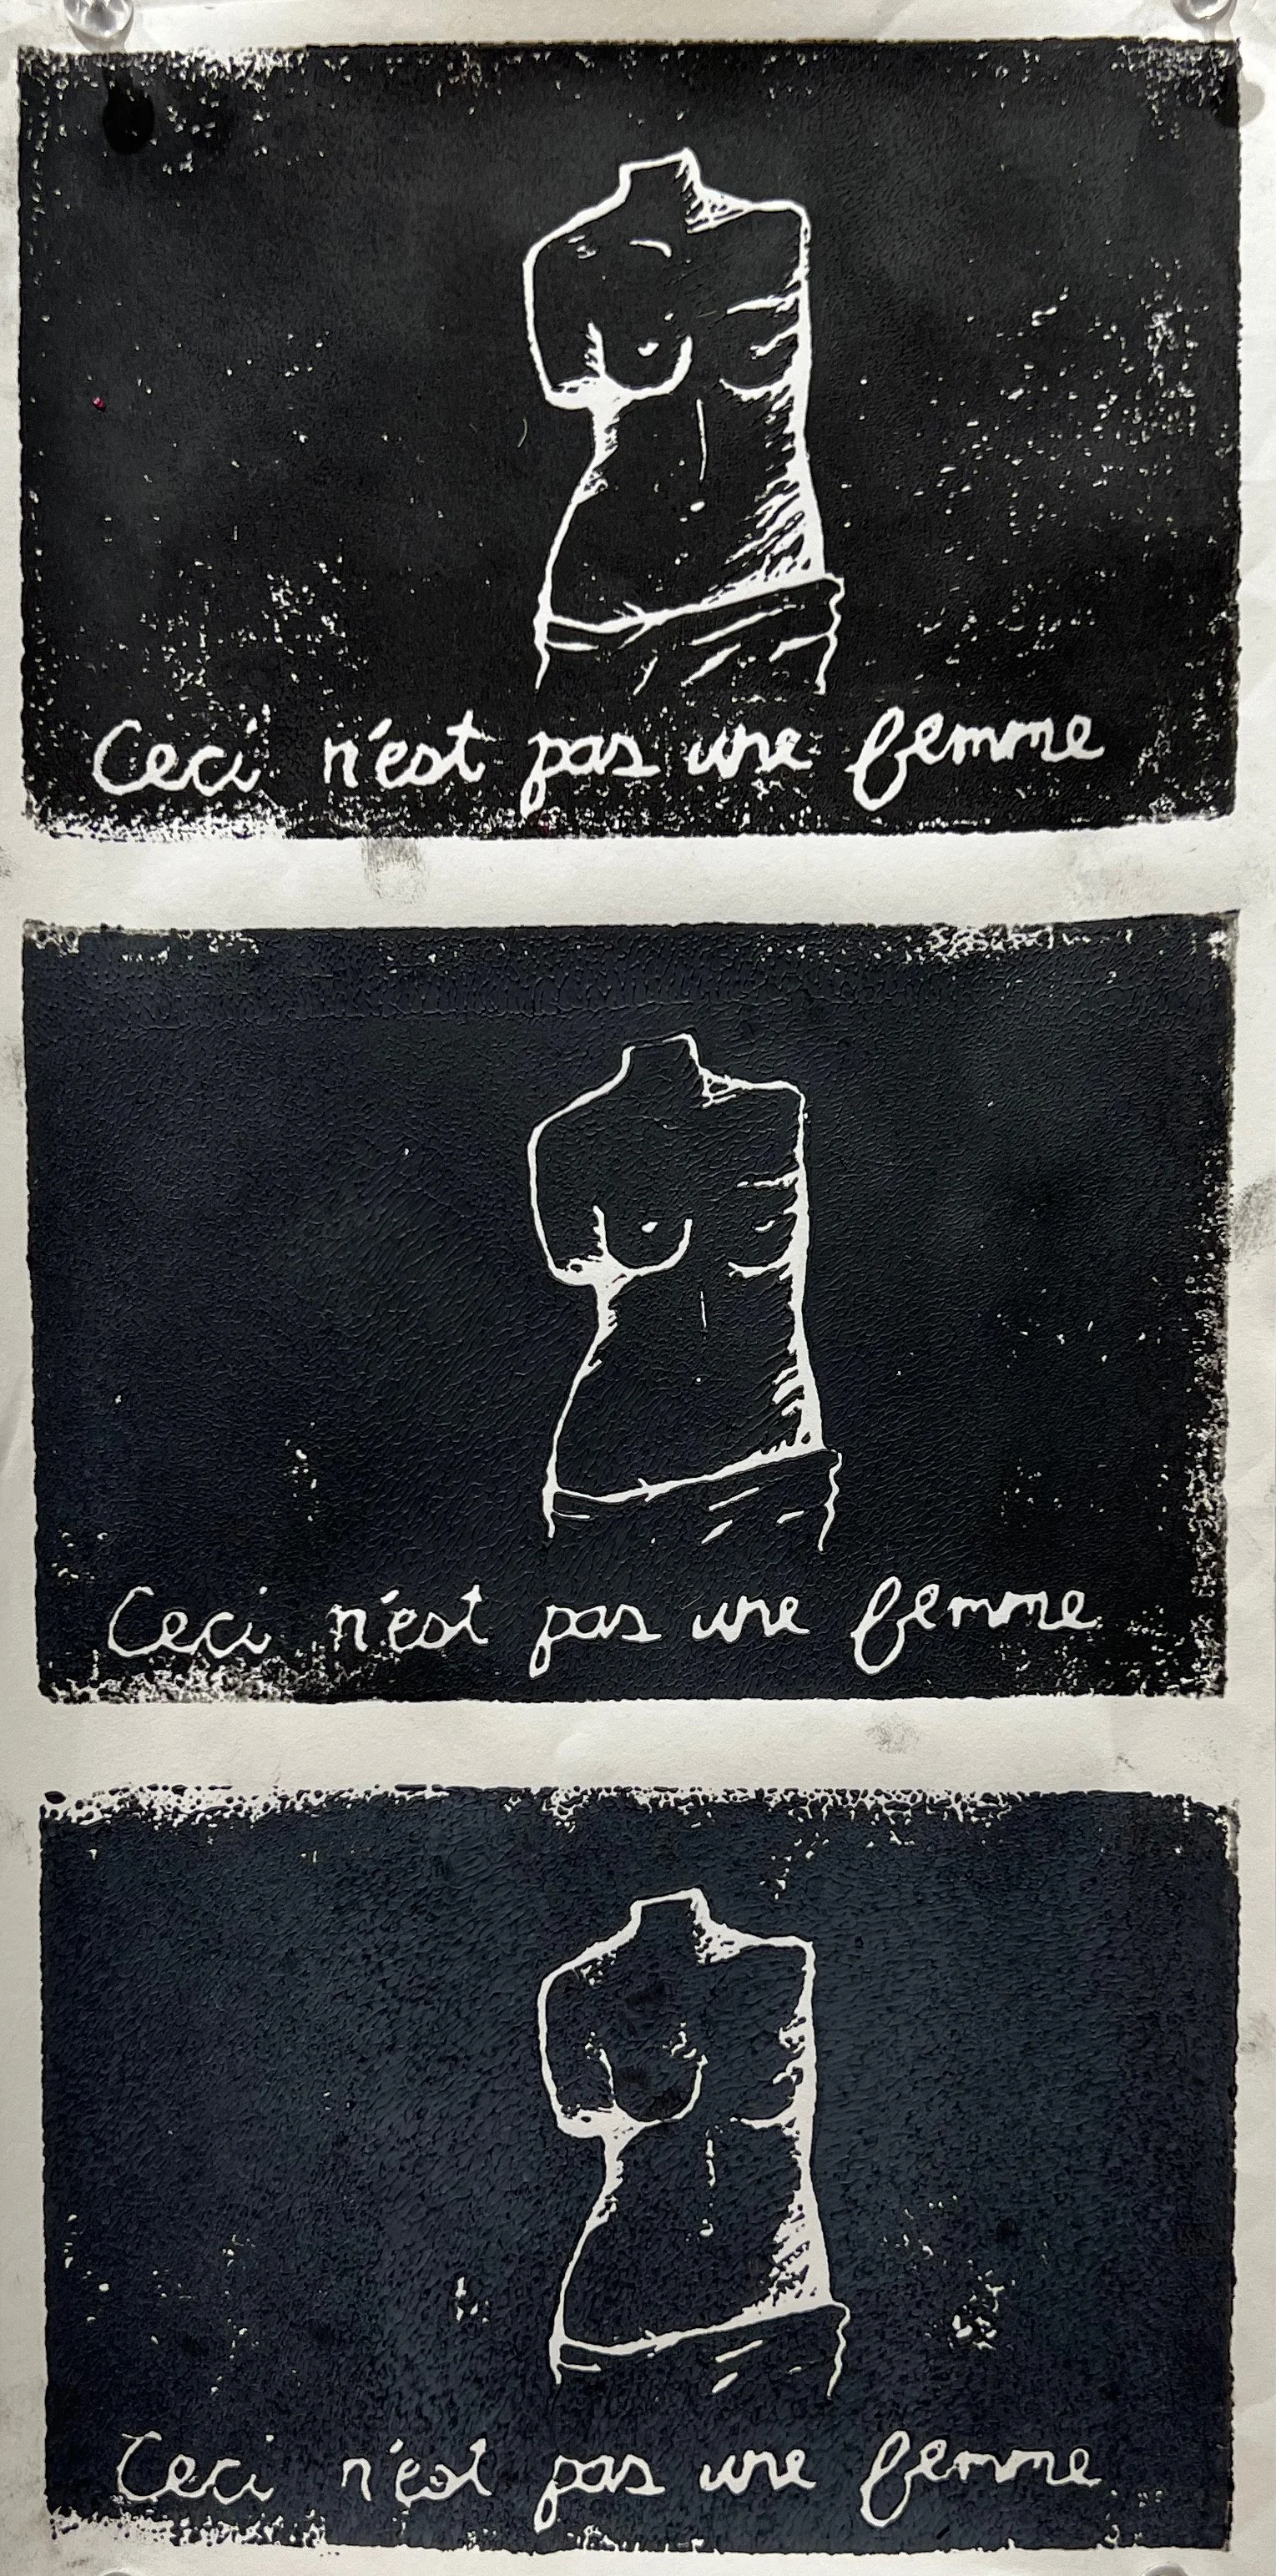 Ceci n'est pas une femme
Ceci n'est pas une femme
Ceci n'est pas une femme